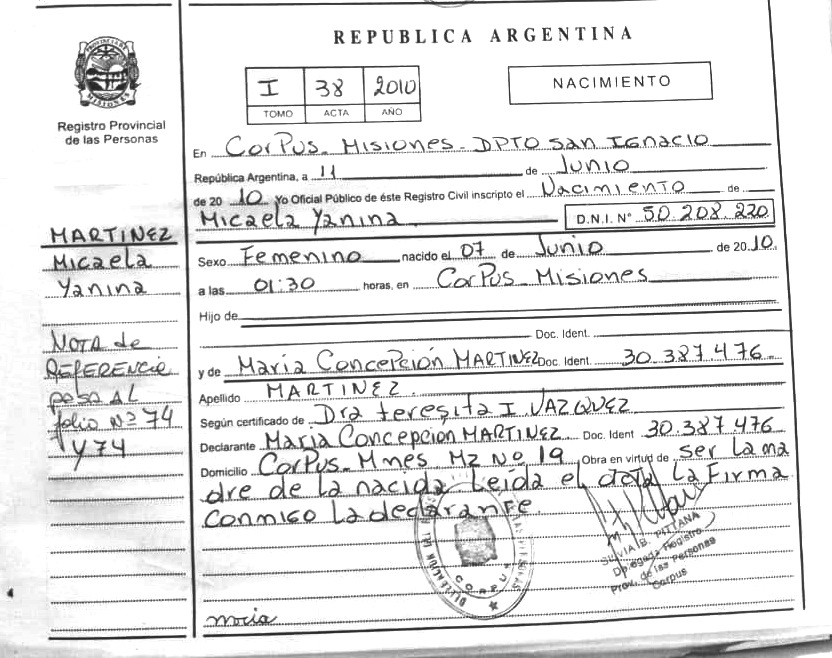 REPUBLICA ARGENTINA
I 38 2010
TOMO ACTA AÑO
NACIMIENTO
PROVINCIA DE MISIONES
Registro Provincial
de las Personas
En CorPus - Misiones - DPTO San IGnacio
República Argentina, a 11 de Junio
de 20 10 Yo Oficial Público de éste Registro Civil inscripto el Nacimiento de
Micaela Yanina D.N.I. Nº 50.208.220
Sexo Femenino nacido el 07 de Junio de 2010
a las 01:30 horas, en CorPus Misiones
Hijo de
Doc. Ident.
y de María ConcePción MARTINEZ Doc. Ident. 30.387.476
Apellido MARTINEZ
Según certificado de Dra teresita I. VAZQUEZ
Declarante María Concepción MARTINEZ Doc. Ident 30.387.476
Domicilio CorPus - Mnes Mz Nº 19 Obra en virtud de ser La ma
dre de La nacida Leída el acta La Firma
conmigo La declarante
MARTINEZ
Micaela
Yanina
NOTA de
REFERENCIA
pasa AL
folio Nº 74
y 74
SILVIA B. PITTANA
Delegada Registro
Prov. de las Personas
Corpus
CORPUS